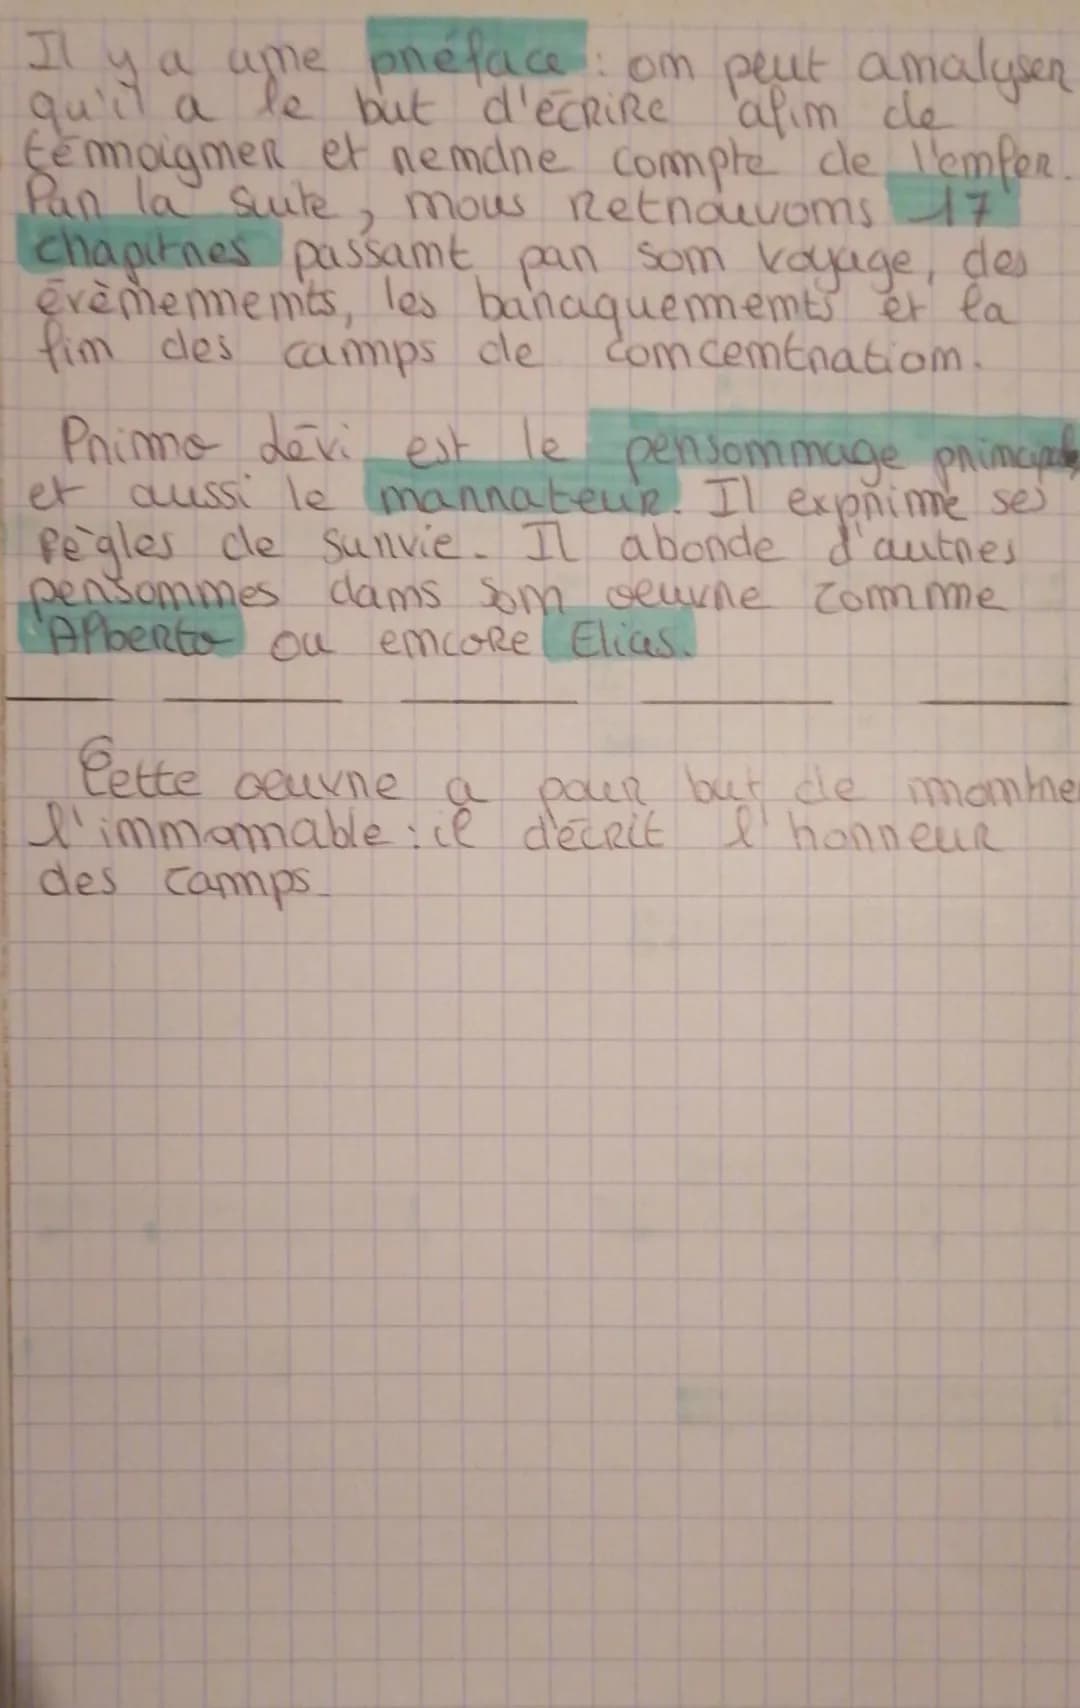 Il y a une préface : on peut analyser
qu'il a le but d'écrire afin de
témoigner et rendre compte de l'enfer.
Par la suite, nous retrouvons 17
chapitres passant par son voyage, des
évènements, les baraquements et la
fin des camps de concentration.
Primo Lévi est le personnage principal
et aussi le narrateur. Il exprime ses
règles de survie. Il abonde d'autres
personnes dans son oeuvre comme
Alberto ou encore Elias.
Cette oeuvre a pour but de montrer
l'innomable : il décrit l'horreur
des camps.